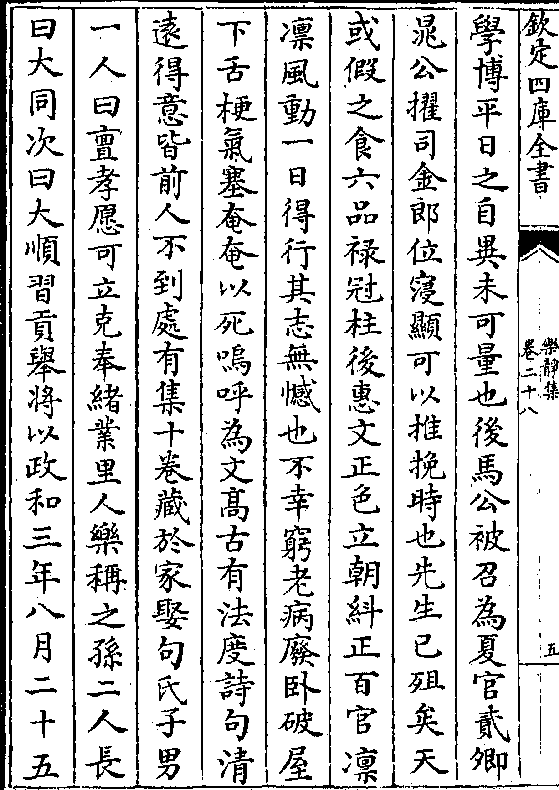 欽定四庫全書
樂靜集
卷二十八
五
學博平日之自異未可量也後馬公被召為夏官貳卿
晁公擢司金郎位寖顯可以推挽時也先生已殂矣天
或假之食六品祿冠柱後惠文正色立朝糾正百官凛
凛風動一日得行其志無憾也不幸窮老病廢卧破屋
下舌梗氣塞奄奄以死嗚呼為文髙古有法度詩句清
遠得意皆前人不到處有集十卷藏於家娶句氏子男
一人曰亶孝愿可立克奉緒業里人樂稱之孫二人長
曰大同次曰大順習貢舉將以政和三年八月二十五